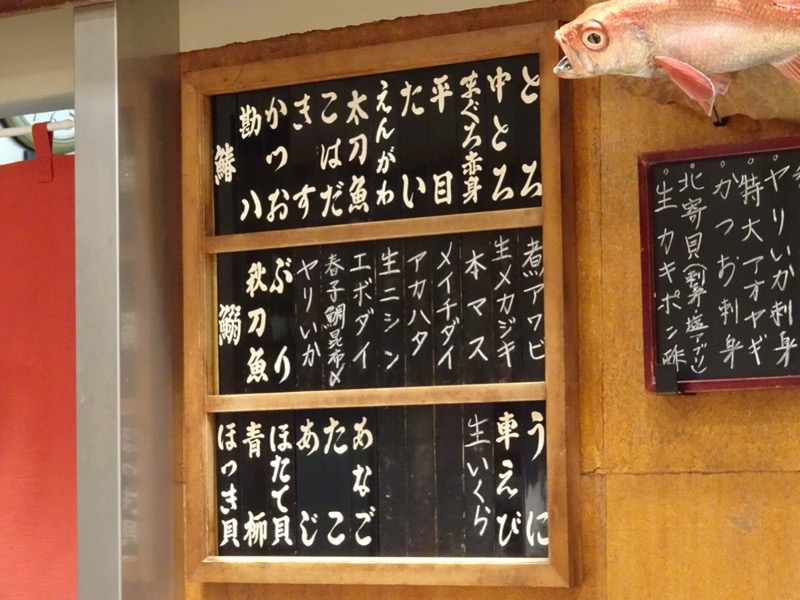 とろ
中とろ
まぐろ赤身
平目
たい
えんがわ
太刀魚
こはだ
きす
かつお
勘八
鰆
煮アワビ
生メカジキ
本マス
メイチダイ
アカハタ
生ニシン
エボダイ
春子鯛昆布〆
ヤリいか
ぶり
秋刀魚
鰯
うに
車えび
生いくら
あなご
たこ
あじ
ほたて貝
青柳
ほっき貝
ヤリいか刺身
特大アオヤギ
かつお刺身
北寄貝(刺身・塩アブリ)
生カキポン酢